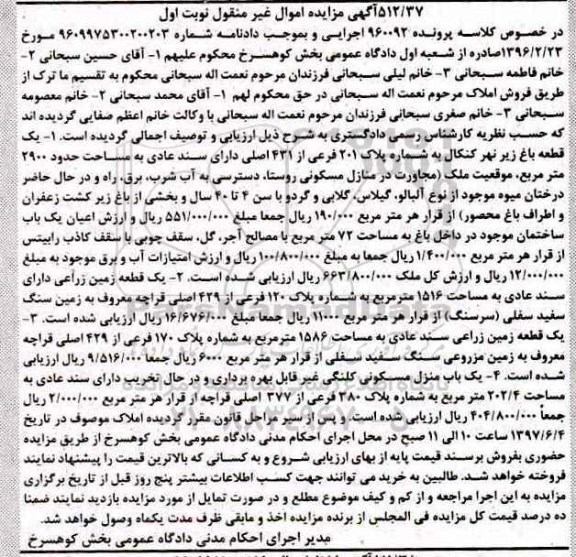 ۵۱۲/۳۷آگهی مزایده اموال غیر منقول نوبت اول
در خصوص کلاسه پرونده ۹۶۰۰۹۲ اجرایی و بموجب دادنامه شماره ۹۶۰۹۹۷۵۳۰۰۲۰۰۲۰۳ مورخ
۱۳۹۶/۲/۲۳صادره از شعبه اول دادگاه عمومی بخش کوهسرخ محکوم علیهم ۱- آقای حسین سبحانی ۲-
خانم فاطمه سبحانی ۳- خانم لیلی سبحانی فرزندان مرحوم نعمت اله سبحانی محکوم به تقسیم ما ترک از
طریق فروش املاک مرحوم نعمت اله سبحانی در حق محکوم لهم ۱- آقای محمد سبحانی ۲- خانم معصومه
سبحانی ۳- خانم صغری سبحانی فرزندان مرحوم نعمت اله سبحانی با وکالت خانم اعظم صفایی گردیده اند
که حسب نظریه کارشناس رسمی دادگستری به شرح ذیل ارزیابی و توصیف اجمالی گردیده است. ۱- یک
قطعه باغ زیر نهر کنکال به شماره پلاک ۲۰۱ فرعی از ۴۳۱ اصلی دارای سند عادی به مساحت حدود ۲۹۰۰
متر مربع، موقعیت ملک (مجاورت در منازل مسکونی روستا، دسترسی به آب شرب، برق، راه و در حال حاضر
درختان میوه موجود از نوع آلبالو، گیلاس، گلابی و گردو با سن ۴ تا ۴۰ سال و بخشی از باغ زیر کشت زعفران
و اطراف باغ محصور) از قرار هر متر مربع ۱۹۰/۰۰۰ ریال جمعا مبلغ ۵۵۱/۰۰۰/۰۰۰ ریال و ارزش اعیان یک باب
ساختمان موجود در داخل باغ به مساحت ۷۲ متر مربع با مصالح آجر، گل، سقف چوبی با سقف کاذب رابیتس
از قرار هر متر مربع ۱/۴۰۰/۰۰۰ ریال جمعا به مبلغ ۱۰۰/۸۰۰/۰۰۰ ریال و ارزش امتیازات آب و برق موجود به مبلغ
۱۲/۰۰۰/۰۰۰ ریال و ارزش کل ملک ۶۶۳/۸۰۰/۰۰۰ ریال ارزیابی شده است. ۲- یک قطعه زمین زراعی دارای
سند عادی به مساحت ۱۵۱۶ مترمربع به شماره پلاک ۱۲۰ فرعی از ۴۲۹ اصلی قراچه معروف به زمین سنگ
سفید سفلی (سرسنگ) از قرار هر متر مربع ۱۱۰۰۰ ریال جمعا مبلغ ۱۶/۶۷۶/۰۰۰ ریال ارزیابی شده است. ۳-
یک قطعه زمین زراعی سند عادی به مساحت ۱۵۸۶ مترمربع به شماره پلاک ۱۷۰ فرعی از ۴۲۹ اصلی قراچه
معروف به زمین مزروعی سنگ سفید سفلی از قرار هر متر مربع ۶۰۰۰ ریال جمعا ۹/۵۱۶/۰۰۰ ریال ارزیابی
شده است. ۴- یک باب منزل مسکونی کلنگی غیر قابل بهره برداری و در حال تخریب دارای سند عادی به
مساحت ۲۰۲/۴ متر مربع به شماره پلاک ۳۸۰ فرعی از ۳۷۷ اصلی قراچه از قرار هر متر مربع ۲/۰۰۰/۰۰۰ ریال
جمعاً ۴۰۴/۸۰۰/۰۰۰ ریال ارزیابی شده است. و پس از سیر مراحل قانون مقرر گردیده املاک موصوف در تاریخ
۱۳۹۷/۶/۴ ساعت ۱۰ الی ۱۱ صبح در محل اجرای احکام مدنی دادگاه عمومی بخش کوهسرخ از طریق مزایده
حضوری بفروش برسند قیمت پایه از بهای ارزیابی شروع و به کسانی که بالاترین قیمت را پیشنهاد نمایند
فروخته خواهد شد. طالبین به خرید می توانند جهت کسب اطلاعات بیشتر پنج روز قبل از تاریخ برگزاری
مزایده به این اجرا مراجعه و از کم و کیف موضوع مطلع و در صورت تمایل از مورد مزایده بازدید نمایند ضمنا
ده درصد قیمت کل مزایده فی المجلس از برنده مزایده اخذ و مابقی ظرف مدت یکماه وصول خواهد شد.
مدیر اجرای احکام مدنی دادگاه عمومی بخش کوهسرخ